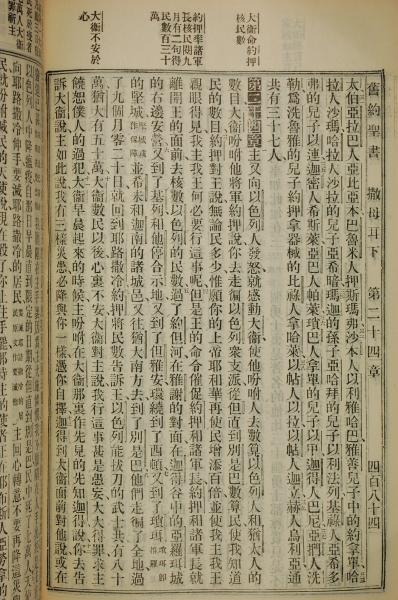 舊約聖書 撒母耳下 第二十四章 四百八十四
大衛命約押核民數
約押率諸軍長核民閱九月有二旬得民數百三十萬
大衛不安於心
太伯亞拉巴人亞比亞本巴魯米人押斯瑪弗沙本人以利雅哈巴雅善兒子中的約拿單哈
拉人沙瑪哈拉人沙拉的兒子亞希暗瑪迦的孫子亞哈拜的兒子以利法列基祿人亞希多
弗的兒子以連迦密人希斯萊亞巴人帕萊瑣巴人拿單的兒子以甲迦得人巴尼亞捫人洗
勒爲洗魯雅的兒子約押拿器械的比祿人拿哈萊以帖人以拉以帖人迦立赫人烏利亞通
共有三十七人
第二十四章主又向以色列人發怒就感動大衛使他吩咐人去數算以色列人和猶太人的
數目大衛吩咐他將軍約押說你去走徧以色列衆支派從但直到別是巴數算民使我知道
民的數目約押對王說無論民多少惟願你的上帝耶和華再使民增添百倍並使我主我王
親眼得見我主我王何必要行這事呢但是王的命令催促約押和諸軍長約押和諸軍長就
離開王的面前去核數以色列的民數過了約但河在雅謝的對面在迦得谷中的亞羅珥城
的右邊安營又到了基列和他停合示地又到了但雅安環繞到了西頓又到了
的堅城並希未和迦南的諸城邑又往猶大南方去到了別是巴他們走徧了全地過
了九個月零二十日就回到耶路撒冷約押將民數告訴王以色列能拔刀的武士共有八十
萬猶大有五十萬大衛數民以後心裏不安大衛對主說我行這事甚是愚妄大大得罪求主
饒恕僕人的過犯大衛早晨起來的時候主吩咐在大衛那裏作先見的先知迦得說你去告
訴大衛說主如此說我有三樣災患必降與你一樣憑你自擇迦得到大衛面前對他說或在